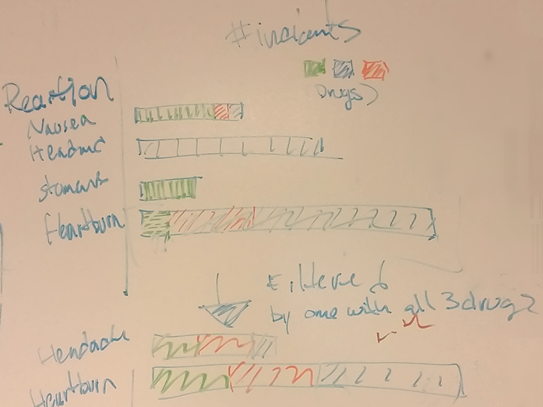 #incidents
Drugs)
Reaction
Nausea
Headac
stomach
Heartburn
Filtered
by one with all 3 drugs
Headache
Heartburn